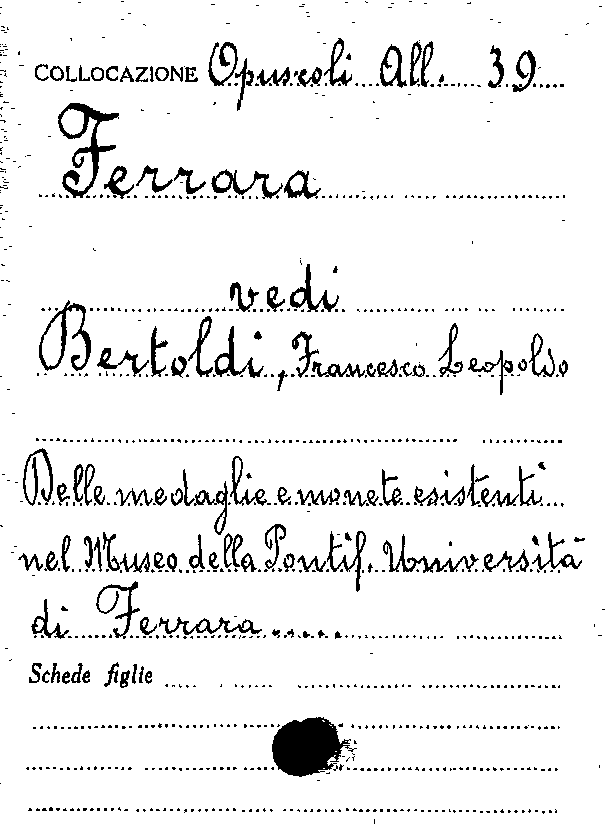 COLLOCAZIONE Opuscoli All. 39
Ferrara
vedi
Bertoldi, Francesco Leopoldo
Delle medaglie e monete esistenti
nel Museo della Pontif. Università
di Ferrara.....
Schede figlie